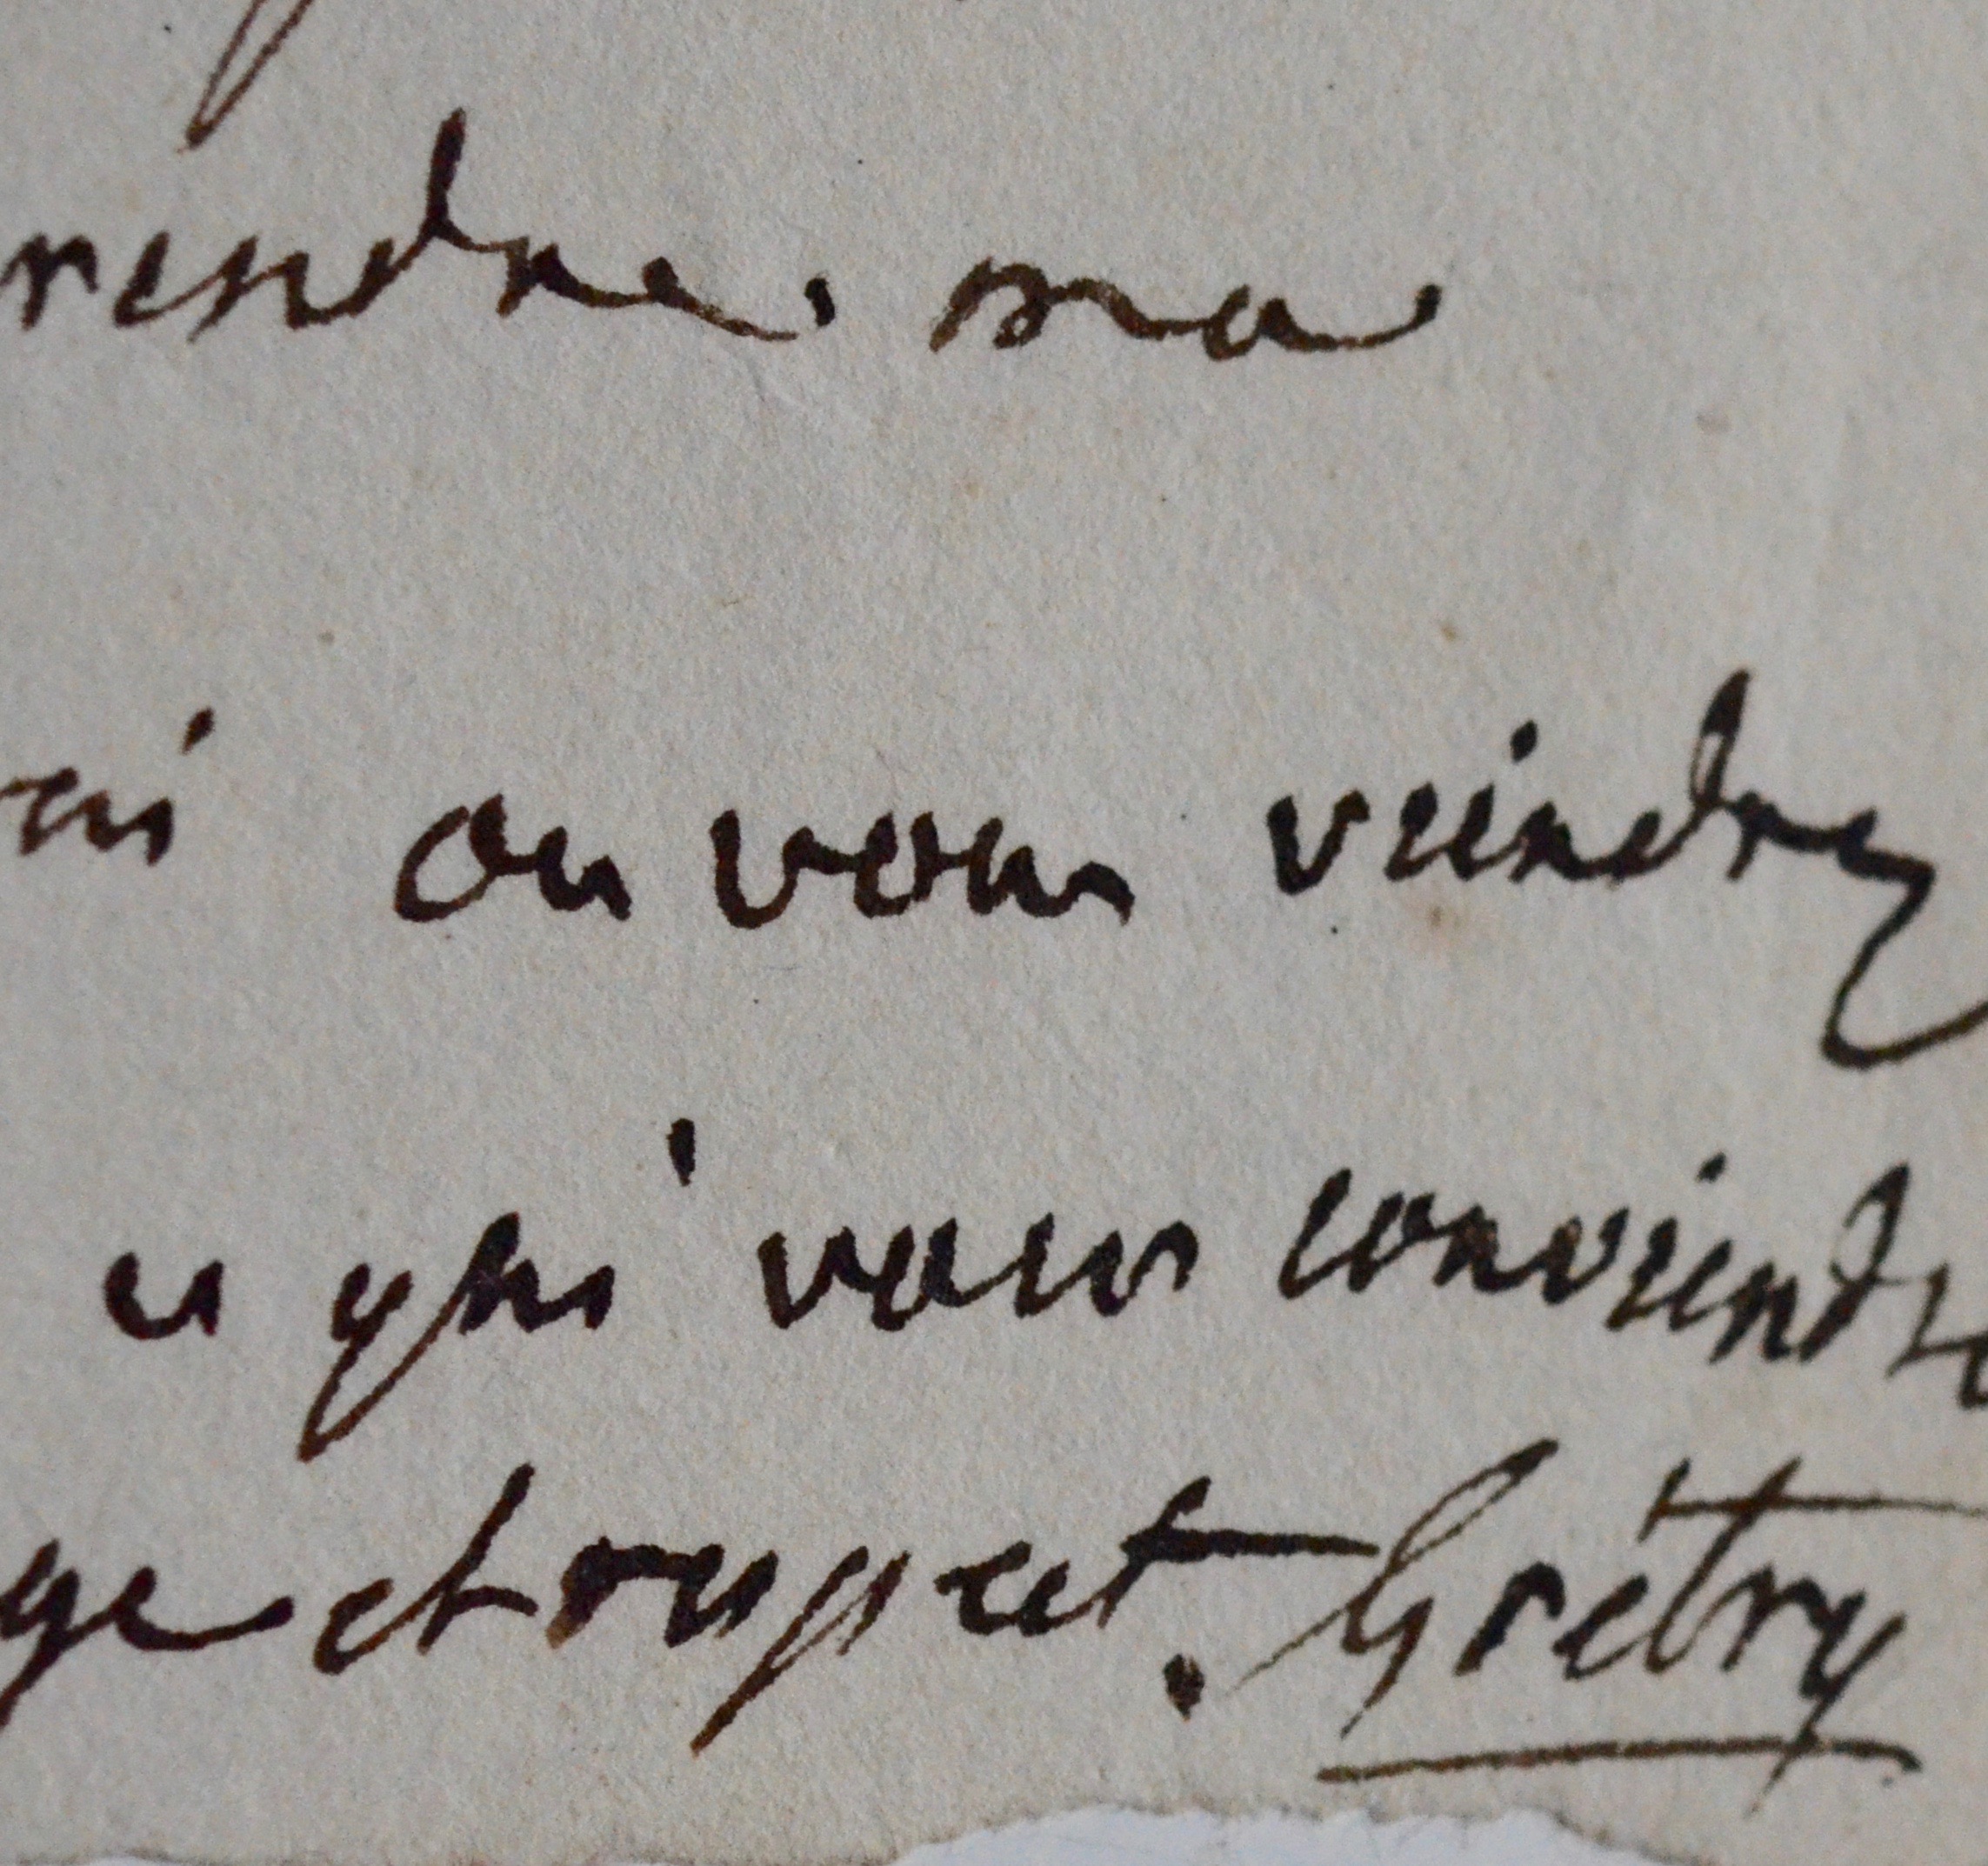 rendre ma
ou vous viendrez
ce qui vous conviendra
et respect. Grétry